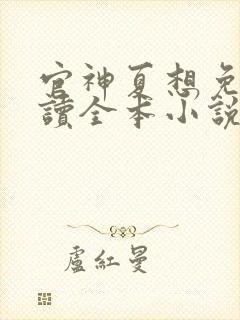 官神夏想免
讀全本小說
盧紅曼